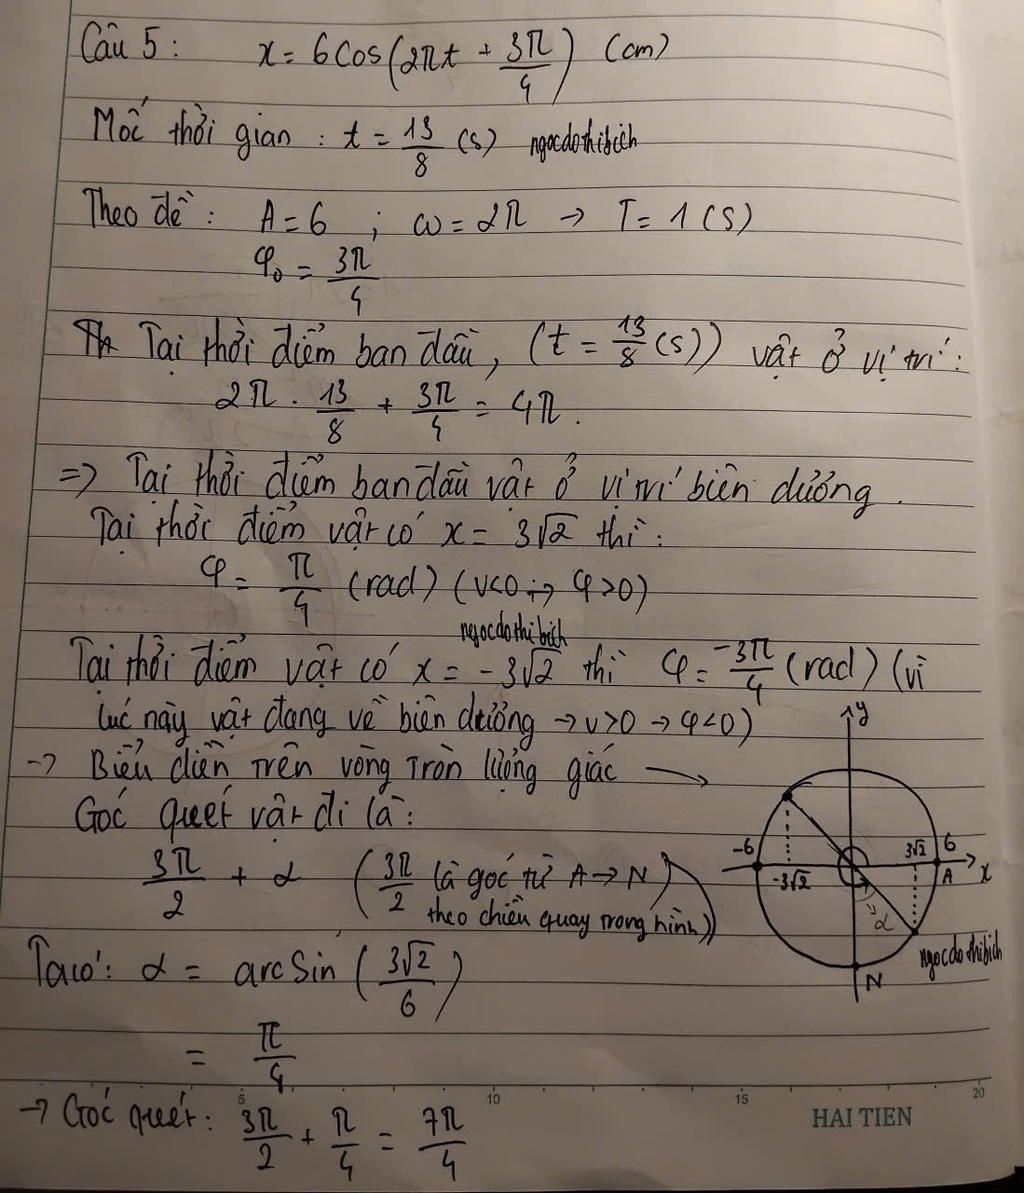 Câu 5 : x = 6cos(2πt + 3π/4) (cm)
Mốc thời gian : t = 13/8 (s) ngocdothibich
Theo đề : A = 6 ; ω = 2π → T = 1 (s)
φ₀ = 3π/4
Tại thời điểm ban đầu, (t = 13/8 (s)) vật ở vị trí :
2π . 13/8 + 3π/4 = 4π.
=> Tại thời điểm ban đầu vật ở vị trí biên dương.
Tại thời điểm vật có x = 3√2 thì :
φ = π/4 (rad) (v<0 → φ>0)
ngocdothibich
Tại thời điểm vật có x = -3√2 thì φ = -3π/4 (rad) (vì
lúc này vật đang về biên dương → v>0 → φ<0)
→ Biểu diễn trên vòng tròn lượng giác →
Góc quét vật đi là :
3π/2 + α (3π/2 là góc từ A → N
theo chiều quay trong hình)
Ta có : α = arcsin (3√2/6)
= π/4
→ Góc quét : 3π/2 + π/4 = 7π/4
y
-6 -3√2 3√2 6 A x
α
ngocdothibich
N
5 10 15 20
HAI TIEN